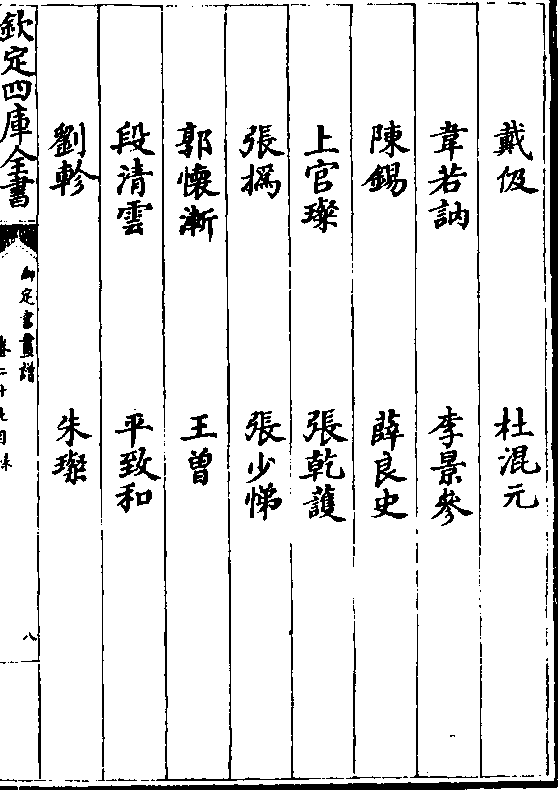 戴伋 杜混元
韋若訥 李景參
陳錫 薛良史
上官璨 張乾護
張撝 張少悌
郭懷漸 王曾
段清雲 平致和
劉軫 朱璨
欽定四庫全書
御定書畫譜
卷二十九目錄
八